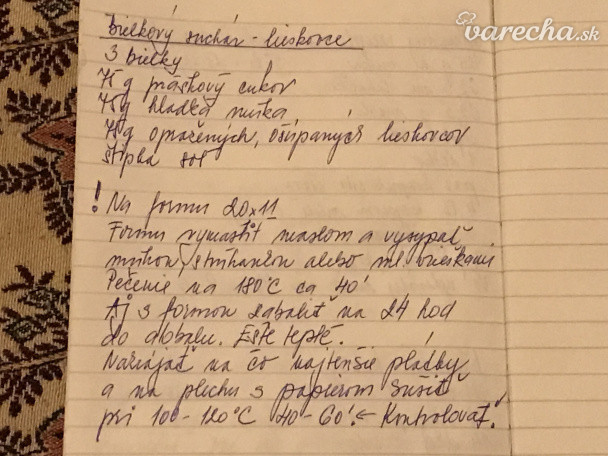 varecha.sk
Bielkový suchár - lieskovce
3 bielky
75 g práškový cukor
75 g hladká múka
75 g opražených, ošúpaných lieskovcov
štipka soľ
! Na formu 20x11
Formu vymastiť maslom a vysypať
múkou/strúhankou alebo ml. orieškami
Pečenie na 180°C ca 40'
Aj s formou zabaliť na 24 hod
do alobalu. Ešte teplé.
Nakrájať na čo najtenšie plátky
a na plechu s papierom sušiť
pri 100-120°C 40-60'. ← Kontrolovať.